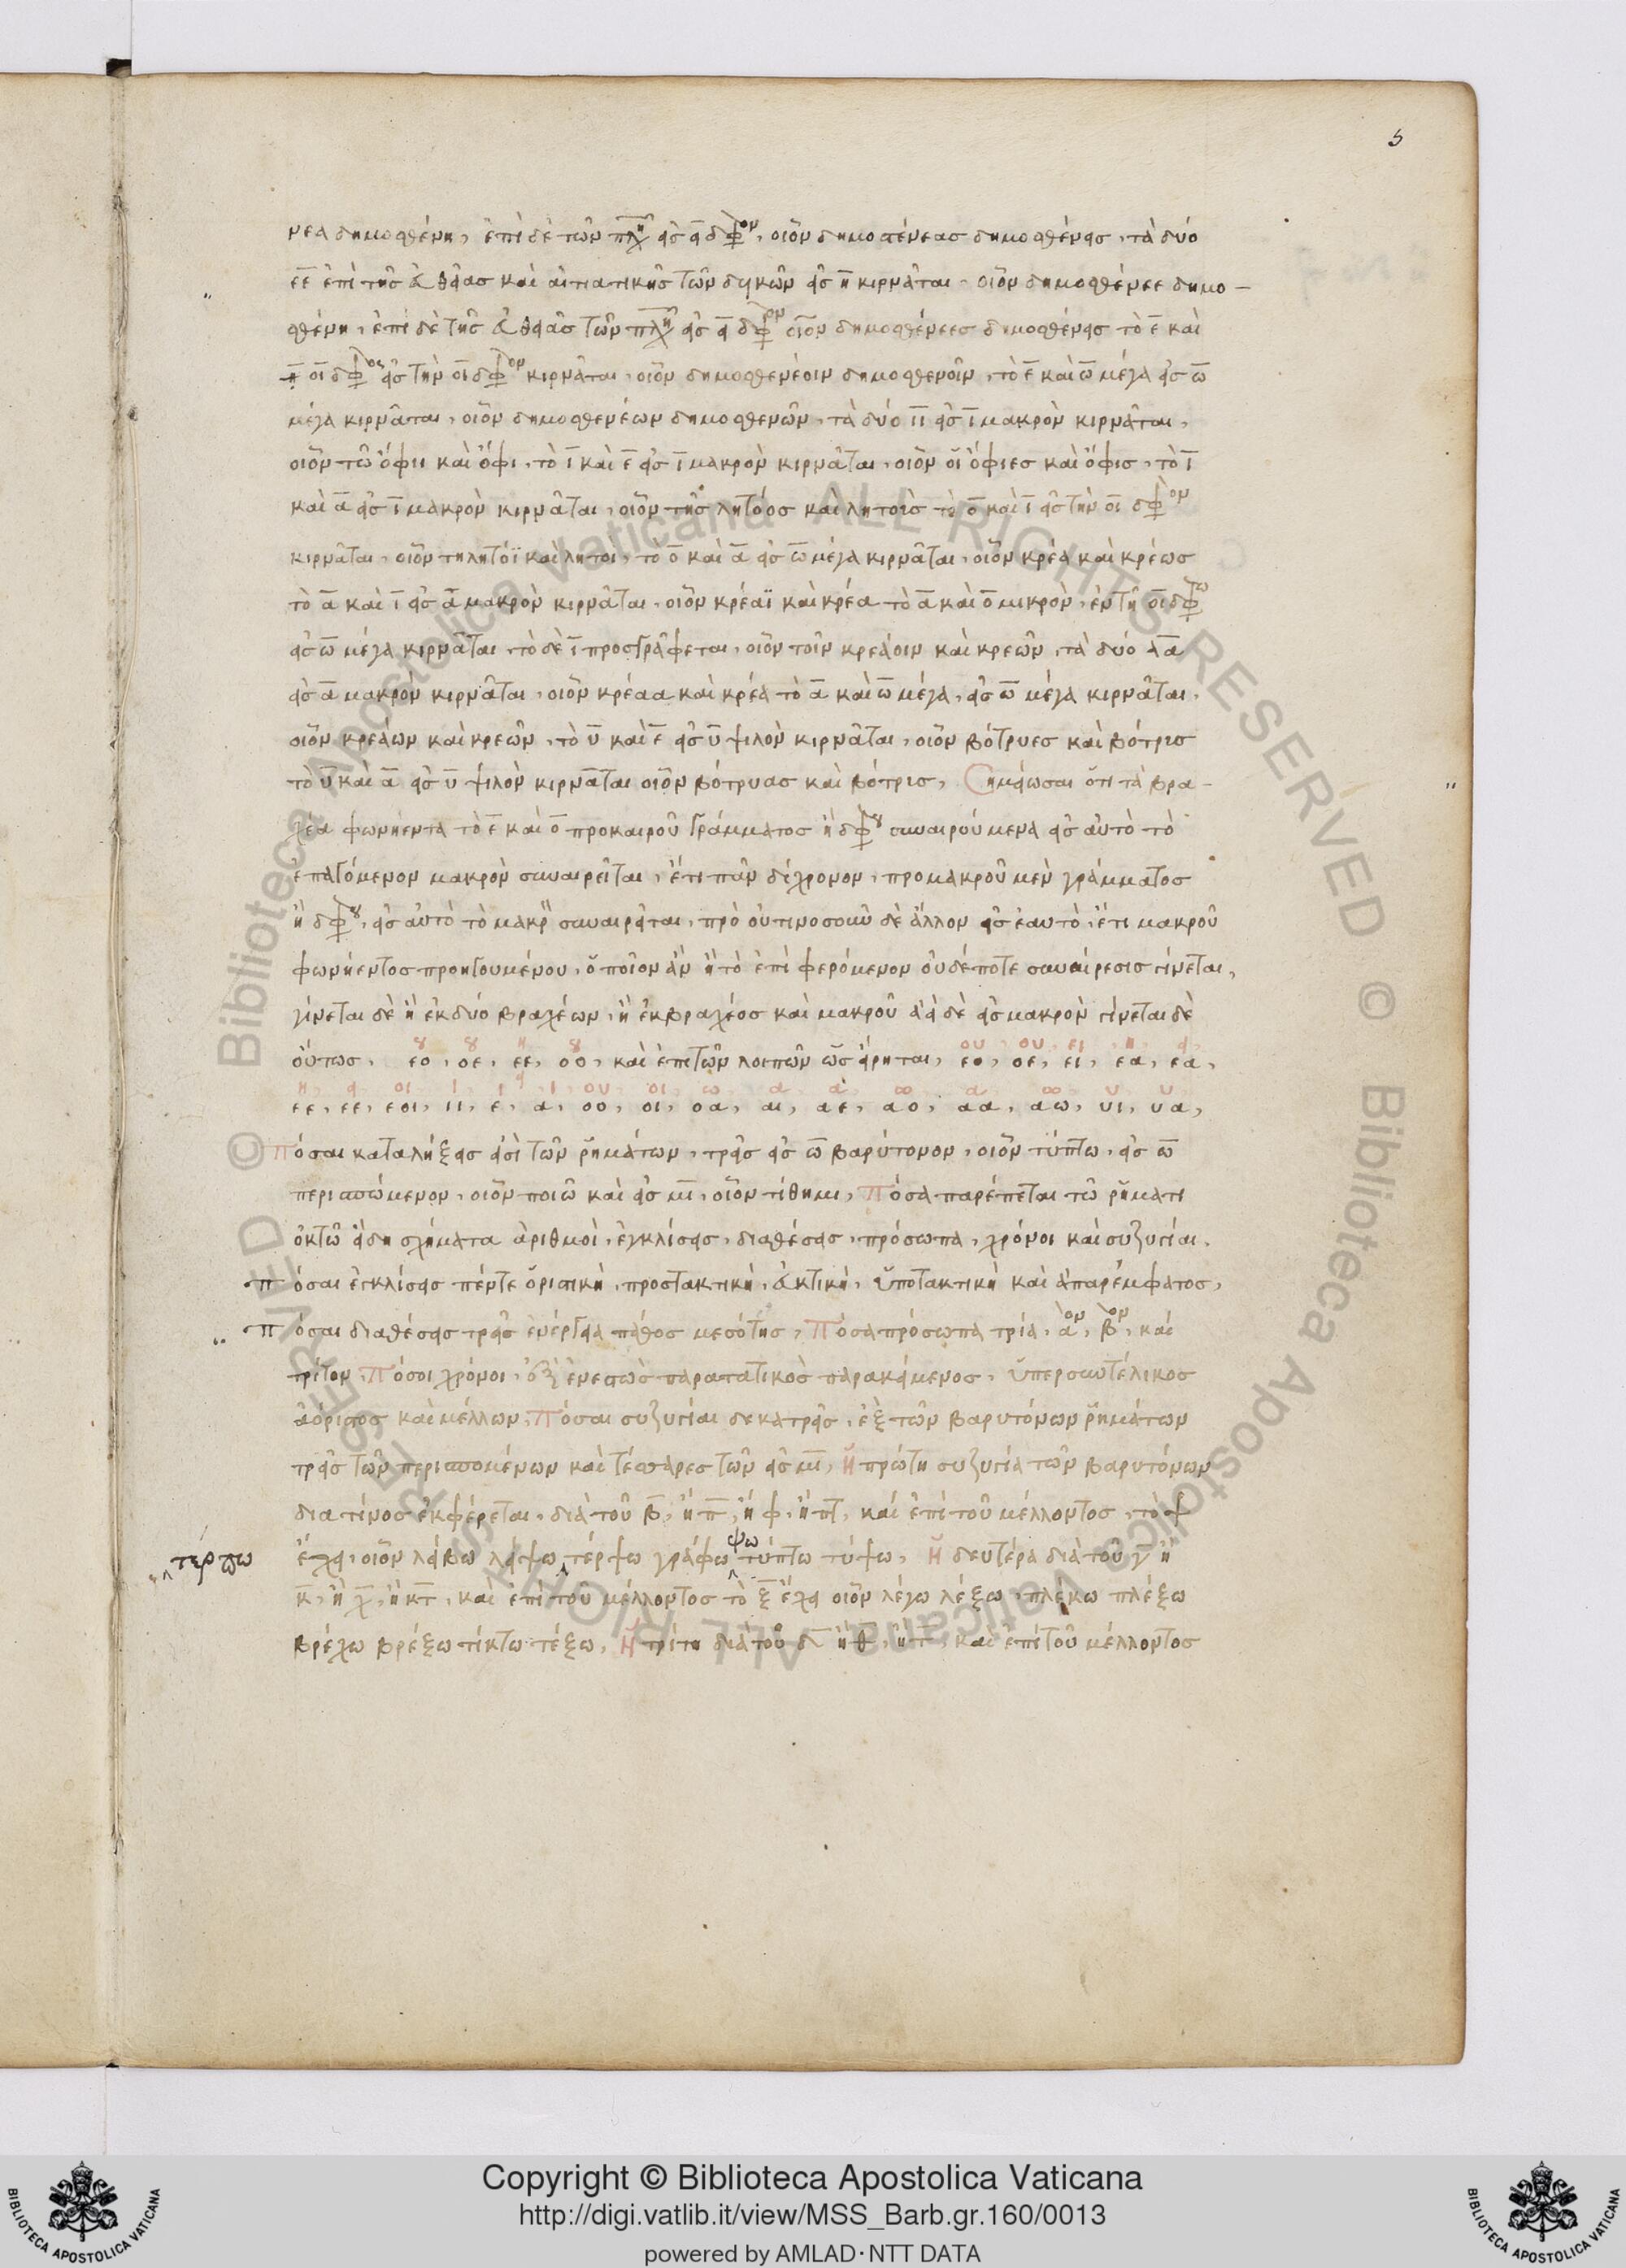 5
νεα δημοσθένη, ἐπὶ δὲ τῶν πλη εἰς ει δφον, οἷον δημοσθένεας δημοσθένεις, τὰ δύο
εε ἐπὶ τῆς εὐθείας καὶ αἰτιατικῆς τῶν δυικῶν εἰς η κιρνᾶται, οἷον δημοσθένεε δημο-
σθένη, ἐπὶ δὲ τῆς εὐθείας τῶν πλη εἰς ει δφον οἷον δημοσθένεες δημοσθένεις τὸ ε καὶ
η οι δφος εἰς τὴν οι δφον κιρνᾶται, οἷον δημοσθενέοιν δημοσθενοῖν, τὸ ε καὶ ω μέγα εἰς ω
μέγα κιρνᾶται, οἷον δημοσθενέων δημοσθενῶν, τὰ δύο ιι εἰς ι μακρὸν κιρνᾶται,
οἷον τῶ ὄφιι καὶ ὄφι, τὸ ι καὶ ε εἰς ι μακρὸν κιρνᾶται, οἷον οἵ ὄφιες καὶ ὄφις, τὸ ι
καὶ α εἰς ι μακρὸν κιρνᾶται, οἷον τῆς λητόος καὶ λητοῖς τὸ ο καὶ ι εἰς τὴν οι δφον
κιρνᾶται, οἷον τηλητόϊ καὶ λητοι, τὸ ο καὶ α εἰς ω μέγα κιρνᾶται, οἷον κρέα καὶ κρέως
τὸ α καὶ ι εἰς α μακρὸν κιρνᾶται, οἷον κρέαϊ καὶ κρέα τὸ α καὶ ο μικρὸν, ἐν τῆ οι δφω
εἰς ω μέγα κιρνᾶται, τὸ δὲ ι προσγράφεται, οἷον τοῖν κρεάοιν καὶ κρεῶν, τὰ δύο αα
εἰς α μακρὸν κιρνᾶται, οἷον κρέαα καὶ κρέα τὸ α καὶ ω μέγα, εἰς ω μέγα κιρνᾶται,
οἷον κρεάων καὶ κρεῶν, τὸ υ καὶ ε εἰς υ ψιλὸν κιρνᾶται, οἷον βότρυες καὶ βότρυς
τὸ υ καὶ α εἰς υ ψιλὸν κιρνᾶται οἷον βότρυας καὶ βότρυς, Σημείωσαι ὅτι τὰ βρα-
χέα φωνήεντα τὸ ε καὶ ο προκαιροῦ γράμματος ἢ δφου συναιρούμενα εἰς αὐτὸ τὸ
ἐπαγόμενον μακρὸν συναιρεῖται, ἔτι πᾶν δίχρονον, προμακροῦ μὲν γράμματος
ἢ δφου, εἰς αὐτὸ τὸ μακρὸν συναιρεῖται, πρὸ οὑτινοσοῦν δὲ ἄλλου εἰς ἑαυτὸ, ἔτι μακροῦ
φωνήεντος προηγουμένου, ὅποῖον ἂν ἢ τὸ ἐπιφερόμενον οὐδέποτε συναίρεσις γίνεται,
γίνεται δὲ ἢ ἐκ δύο βραχέων, ἢ ἐκ βραχέος καὶ μακροῦ ἀεὶ δὲ εἰς μακρὸν γίνεται δὲ
οὕτως. εο, οε, εε, οο, καὶ ἐπὶ τῶν λοιπῶν ὡς εἴρηται, εο, οε, ει, εα, εα,
εε, εε, εοι, ιι, ε, α, οο, οι, οα, αι, αε, αο, αα, αω, υι, υα,
Πόσαι καταλήξεις εἰσὶ τῶν ῥημάτων, τρεῖς εἰς ω βαρύτονον, οἷον τύπτω, εἰς ω
περισπώμενον, οἷον ποιῶ καὶ εἰς μι, οἷον τίθημι, Πόσα παρέπεται τῶ ῥήματι
ὀκτῶ εἴδη σχήματα ἀριθμοὶ, ἐγκλίσεις, διαθέσεις, πρόσωπα, χρόνοι καὶ συζυγίαι.
πόσαι ἐγκλίσεις πέντε ὁριστικὴ, προστακτικὴ, εὐκτικὴ, ὑποτακτικὴ καὶ ἀπαρέμφατος,
πόσαι διαθέσεις τρεῖς ἐνέργεια πάθος μεσότης, Πόσα πρόσωπα τρία, αον, βον, καὶ
τρίτον, Πόσοι χρόνοι, ἓξ ἐνεστὼς παρατατικὸς παρακείμενος, ὑπερσυντέλικος
ἀόριστος καὶ μέλλων, Πόσαι συζυγίαι δεκατρεῖς, ἓξ τῶν βαρυτόνων ῥημάτων
τρεῖς τῶν περισπομένων καὶ τέσσαρες τῶν εἰς μι, ἡ πρώτη συζυγία τῶν βαρυτόνων
διατίνος ἐκφέρεται, διὰ τοῦ β, ἢ π, ἢ φ, ἢ πτ, καὶ ἐπὶ τοῦ μέλλοντος, τὸ ψ
τέρπω ἔχει, οἷον λείβω λείψω τέρψω γράφω ψω τύπτω τύψω, ἡ δευτέρα διὰ τοῦ γ ἢ
κ, ἢ χ, ἢ κτ, καὶ ἐπὶ τοῦ μέλλοντος τὸ ξ ἔχει οἷον λέγω λέξω, πλέκω πλέξω
βρέχω βρέξω τίκτω τέξω, ἡ τρίτη διὰ τοῦ δ ἢ θ, ἢ τ, καὶ ἐπὶ τοῦ μέλλοντος
© Biblioteca Apostolica Vaticana ALL RIGHTS RESERVED © Biblioteca Apostolica Vaticana ALL RIGHTS RESERVED
Copyright © Biblioteca Apostolica Vaticana
http://digi.vatlib.it/view/MSS_Barb.gr.160/0013
powered by AMLAD·NTT DATA
BIBLIOTECA APOSTOLICA VATICANA
BIBLIOTECA APOSTOLICA VATICANA